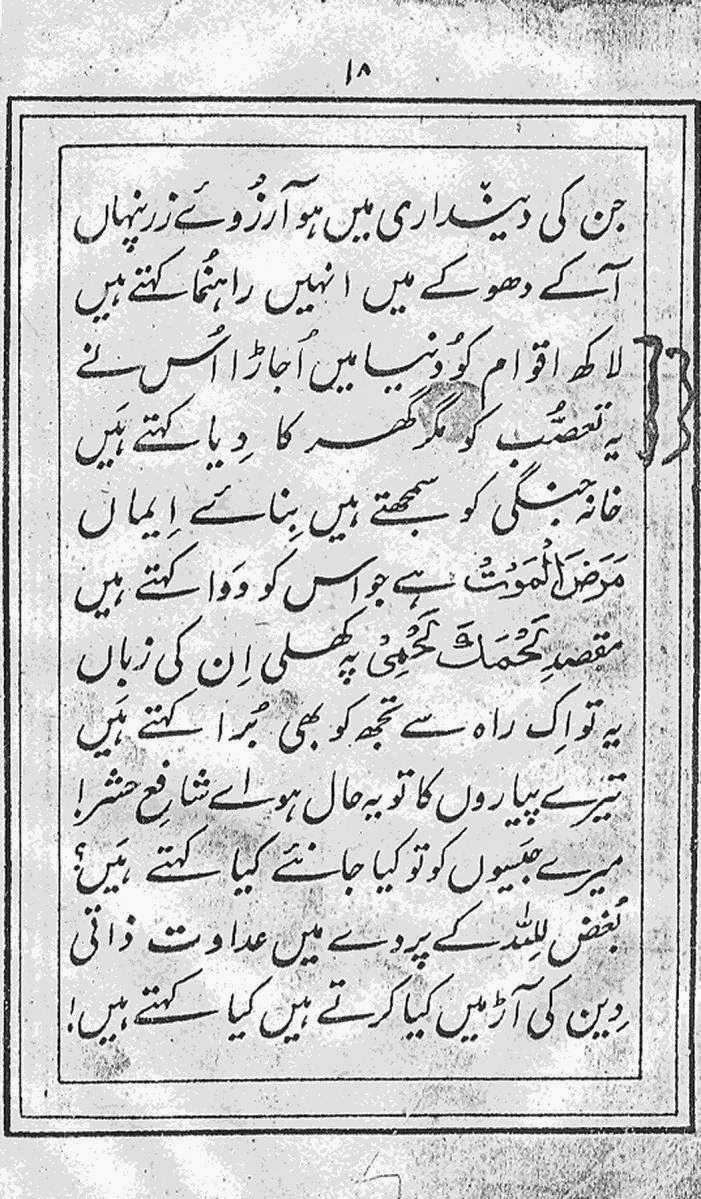 ۱۸
جن کی دینداری میں ہو آرزُوئے زر پنہاں
آ کے دھوکے میں انہیں راہنُما کہتے ہیں
لاکھ اقوام کو دُنیا میں اُجاڑا اُس نے
یہ تعصُّب کو مگر گھر کا دِیا کہتے ہَیں
خانہ جنگی کو سمجھتے ہیں بِنائے اِیماں
مَرَضُ الْمَوْت ہے جو اس کو دَوا کہتے ہیں
مقصدِ لَحْمُكَ لَحْمِیْ پہ کُھلی اِن کی زباں
یہ تو اِک راہ سے تجھ کو بھی بُرا کہتے ہَیں
تیرے پیاروں کا تو یہ حال ہو اے شافِعِ حشر!
میرے جَیسوں کو تو کیا جانئے کیا کہتے ہَیں؟
بُغض لِلّٰہ کے پردے میں عداوت ذاتی
دِین کی آڑ میں کیا کرتے ہیں کیا کہتے ہیں!